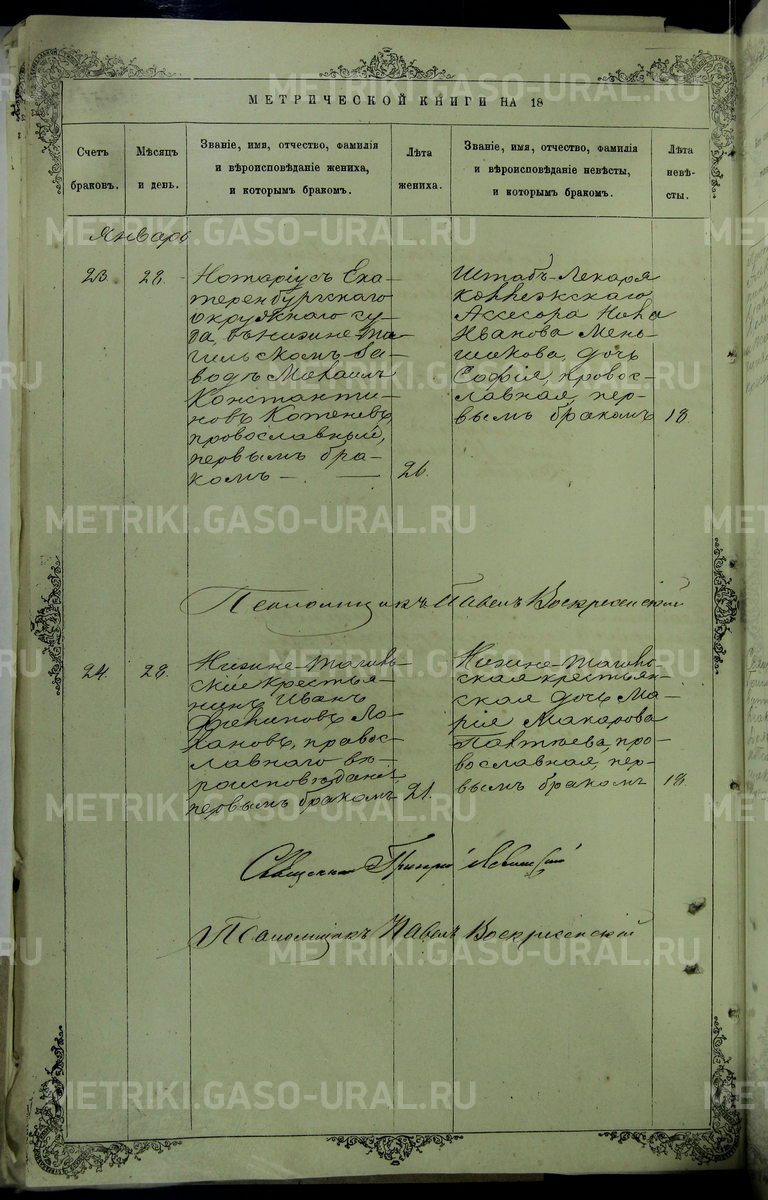 МЕТРИЧЕСКОЙ КНИГИ НА 18
Счетъ браковъ.
Мѣсяцъ и день.
Званіе, имя, отчество, фамилія
и вѣроисповѣданіе жениха,
и которымъ бракомъ.
Лѣта жениха.
Званіе, имя, отчество, фамилія
и вѣроисповѣданіе невѣсты,
и которымъ бракомъ.
Лѣта невѣ-
сты.
Январь
23. 28.
Нотаріусъ Ека-
теренбургскаго
окружнаго су-
да, въ Нижне-Та-
гильскомъ За-
водѣ Михаилъ
Константи-
новъ Котеневъ,
провославный,
первымъ бра-
комъ — . — 26.
Штабъ-Лекаря
Коллежскаго
Ассесора
Иванова Мень-
шикова, дочь
Софія, провос-
лавная, пер-
вымъ бракомъ 18.
Псаломщикъ Павелъ Воскресенскій
24. 28.
Нижне-Тагиль-
скій крестья-
нинъ Иванъ
Ло-
хановъ, правос-
лавнаго вѣ-
роисповѣданія
первымъ бракомъ 21.
Нижне-Тагиль-
ская крестьян-
ская дочь Ма-
рія Макарова
Пантюева, про-
вославная, пер-
вымъ бракомъ 18.
Священникъ Григорій
Псаломщикъ Павелъ Воскресенскій
METRIKI.GASO-URAL.RU